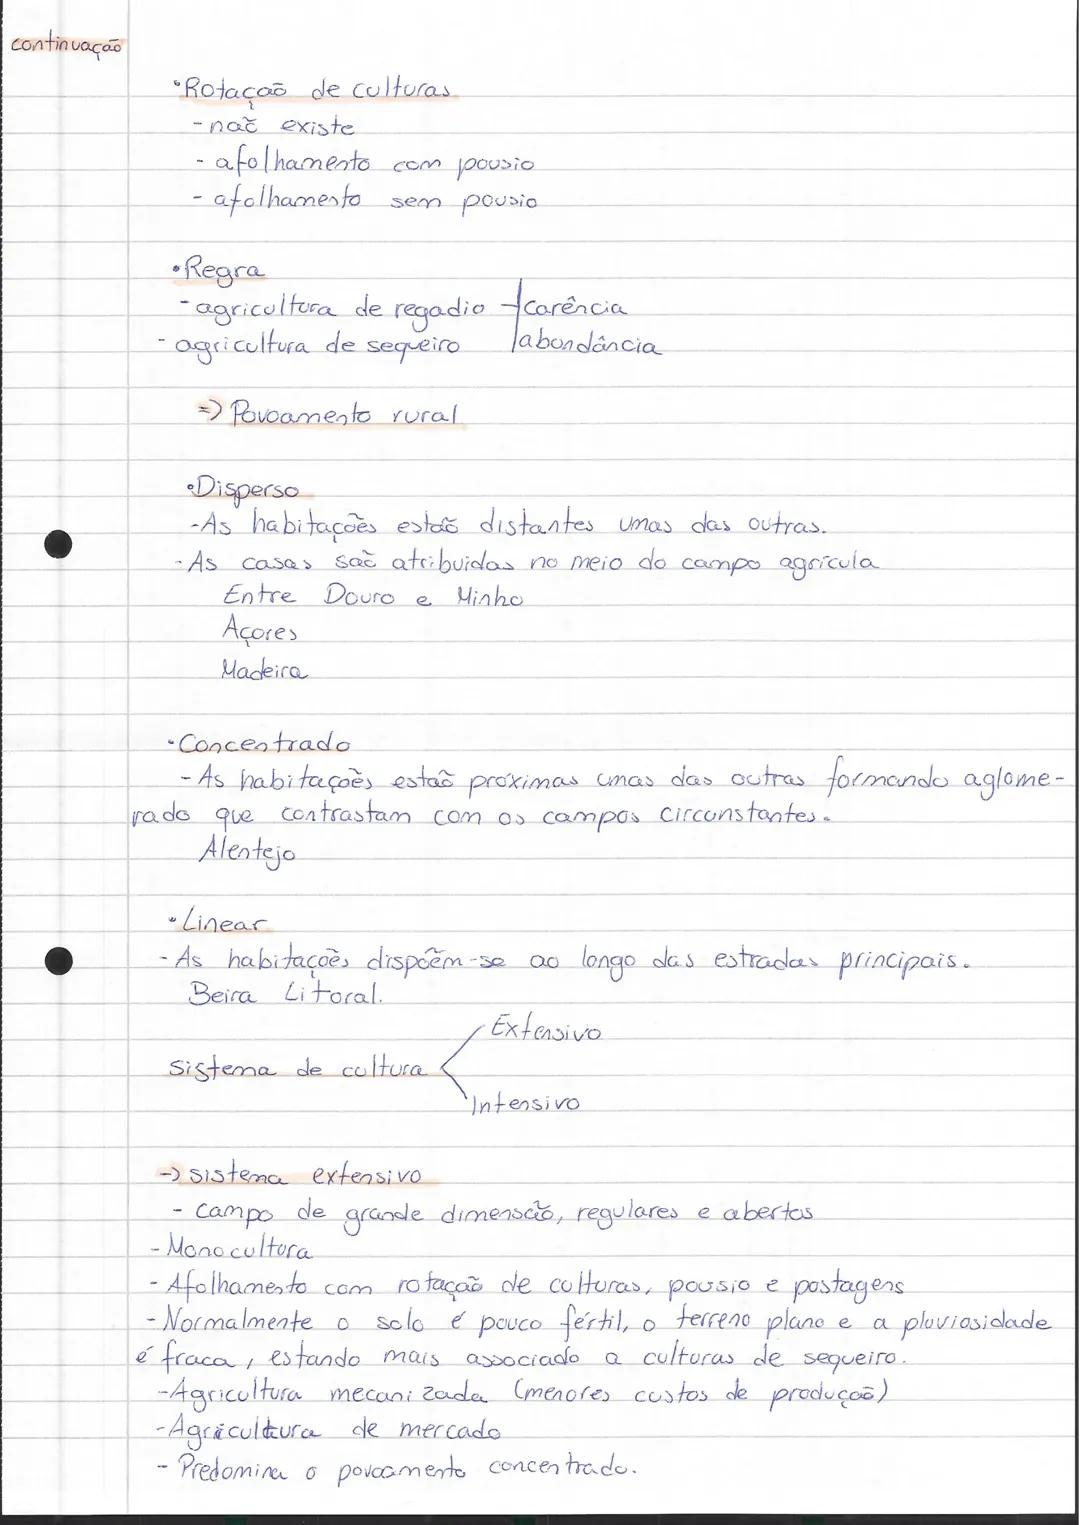 continuação
•Rotação de culturas
-não existe
- afolhamento com pousio
- afolhamento sem pousio
•Regra
-agricultura de regadio carência
- agricultura de sequeiro abundância
=> Povoamento rural
•Disperso
-As habitações estão distantes umas das outras.
-As casas são atribuidas no meio do campo agrícula
Entre Douro e Minho
Açores
Madeira
•Concentrado
-As habitações estão próximas umas das outras formando aglome-
rado que contrastam com os campos circunstantes.
Alentejo
•Linear
-As habitações dispõem-se ao longo das estradas principais.
Beira Litoral.
Extensivo
sistema de cultura
Intensivo
-> sistema extensivo
- campo de grande dimensão, regulares e abertos
-Monocultura
-Afolhamento com rotação de culturas, pousio e postagens
-Normalmente o solo é pouco fértil, o terreno plano e a pluviosidade
é fraca, estando mais associado a culturas de sequeiro.
-Agricultura mecanizada (menores custos de produção)
-Agricultura de mercado
- Predomina o povoamento concentrado.